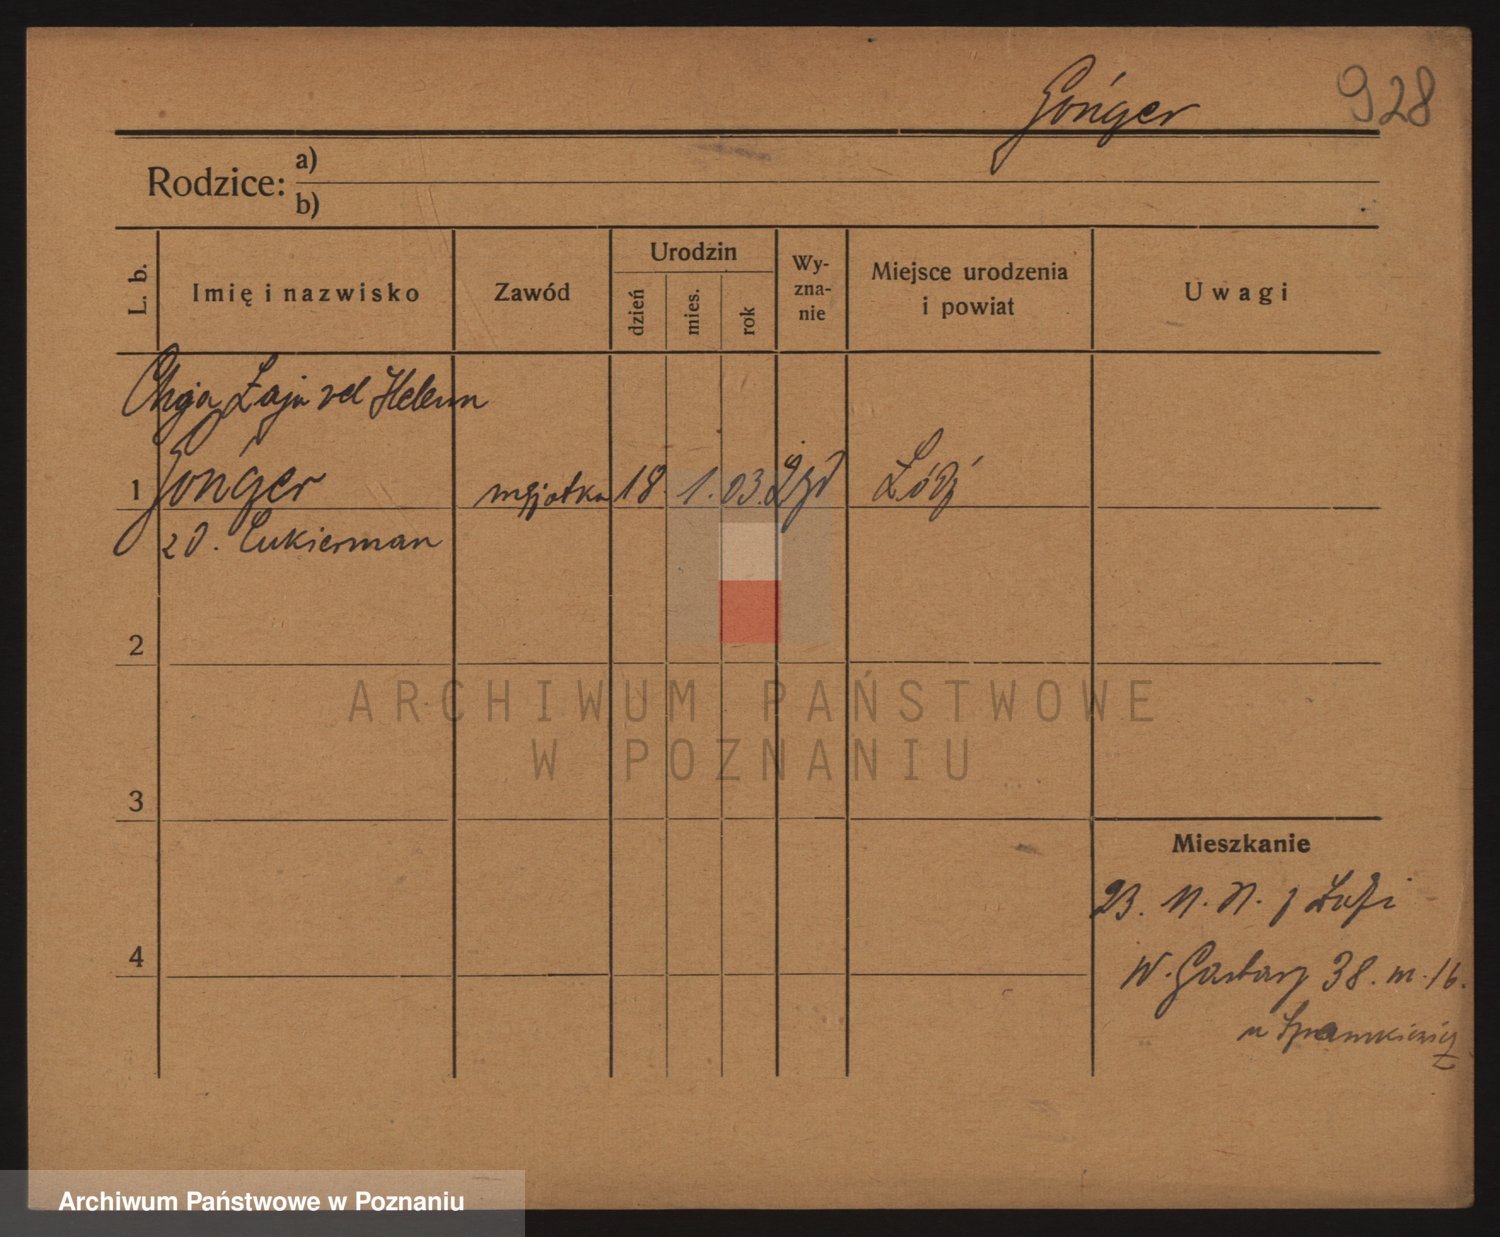 Gońger 928
Rodzice: a)
b)
L. b.
Imię i nazwisko
Zawód
Urodzin
dzień
mies.
rok
Wy-
zna-
nie
Miejsce urodzenia
i powiat
Uwagi
Chaja Łaja vel Helena
1 Gońger mężatka 18. 1. 03. Żyd Łódź
zd. Cukierman
2
ARCHIWUM PAŃSTWOWE
W POZNANIU
3
Mieszkanie
23. z Łodzi
4
W. Garbary 38. m. 16.
u
Archiwum Państwowe w Poznaniu